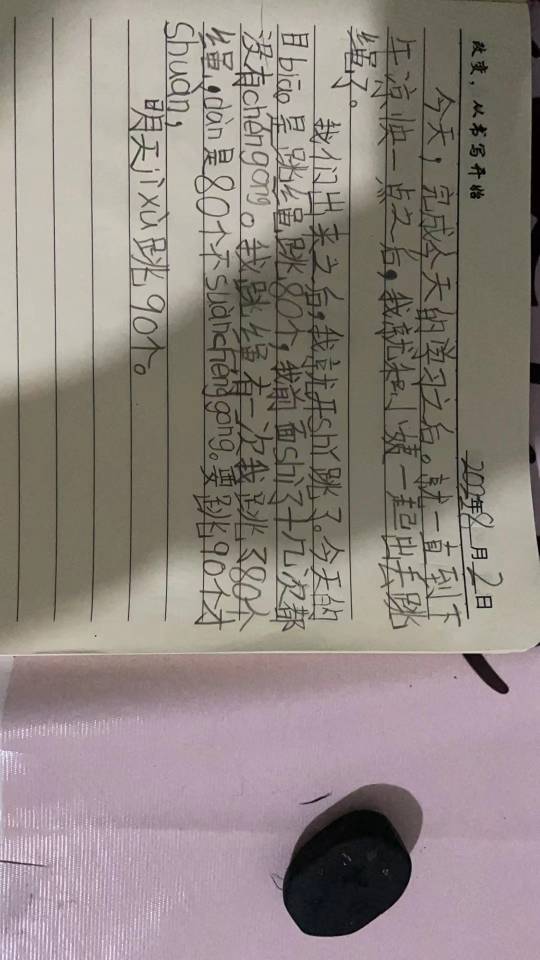 改变，从书写开始
年8月2日
今天，完成今天的学习之后。就一直到下
午凉快一点之后，我就和小姨一起出去跳
绳了。
我们出来之后，我就开shǐ跳了。今天的
目biāo是跳绳跳80个，我前面shì了十几次都
没有chénggōng。我跳绳有一次我跳了80个
绳，dàn是80个不suànchénggōng。要跳90个才
shuàn，
明天jìxù跳90个。